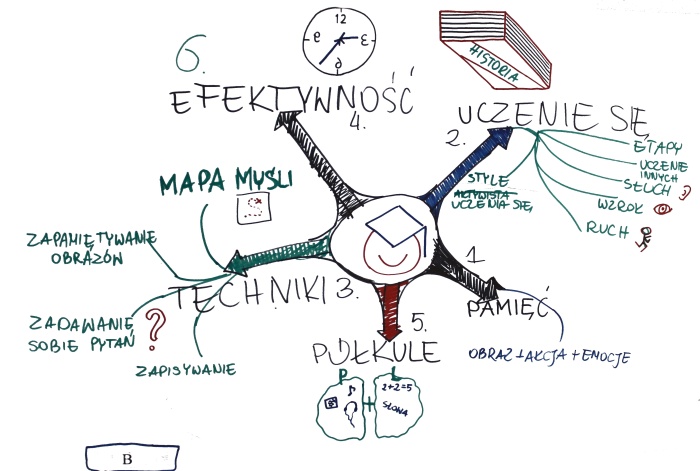 6.
12
3
6
9
EFEKTYWNOŚĆ
4.
HISTORIA
UCZENIE SIĘ
2.
ETAPY
UCZENIE
INNYCH
SŁUCH
WZROK
RUCH
STYLE
AKTYWISTA
UCZENIA SIĘ
MAPA MYŚLI
ZAPAMIĘTYWANIE
OBRAZÓW
TECHNIKI 3.
ZADAWANIE
SOBIE PYTAŃ ?
ZAPISYWANIE
1
PAMIĘĆ
OBRAZ + AKCJA + EMOCJE
5.
PÓŁKULE
P L
2+2=5
+
SŁOWA
B